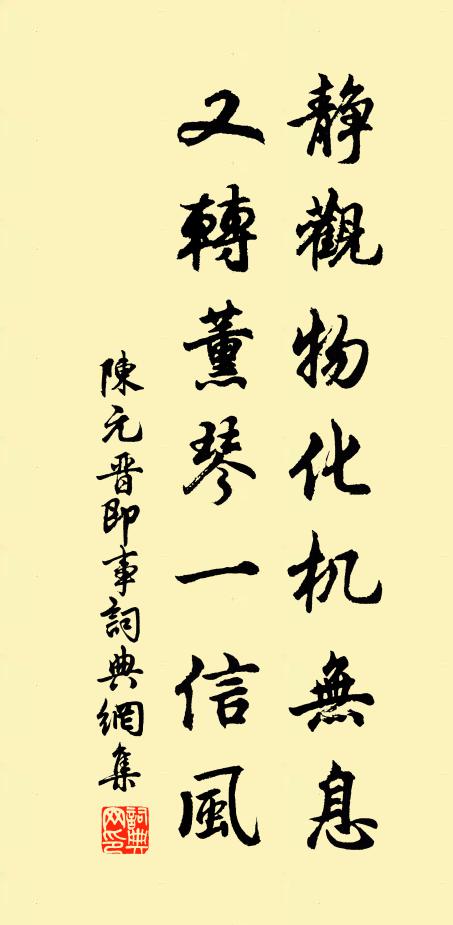 静觀物化机無息
又轉薰琴一信風
陳元晋即事詞典網集
詞典网印